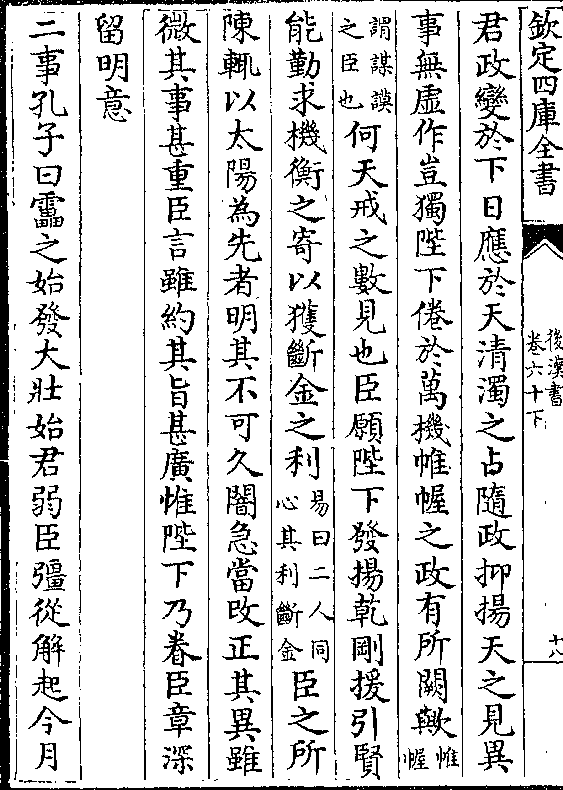 欽定四庫全書
後漢書
卷六十下
十八
君政變於下日應於天清濁之占隨政抑揚天之見異
事無虛作豈獨陛下倦於萬機帷幄之政有所闕歟帷幄
謂謀謨之臣也何天戒之數見也臣願陛下發揚乾剛援引賢
能勤求機衡之寄以獲斷金之利易曰二人同心其利斷金臣之所
陳輒以太陽為先者明其不可久闇急當改正其異雖
微其事甚重臣言雖約其旨甚廣惟陛下乃眷臣章深
留明意
二事孔子曰靁之始發大壯始君弱臣彊從解起今月